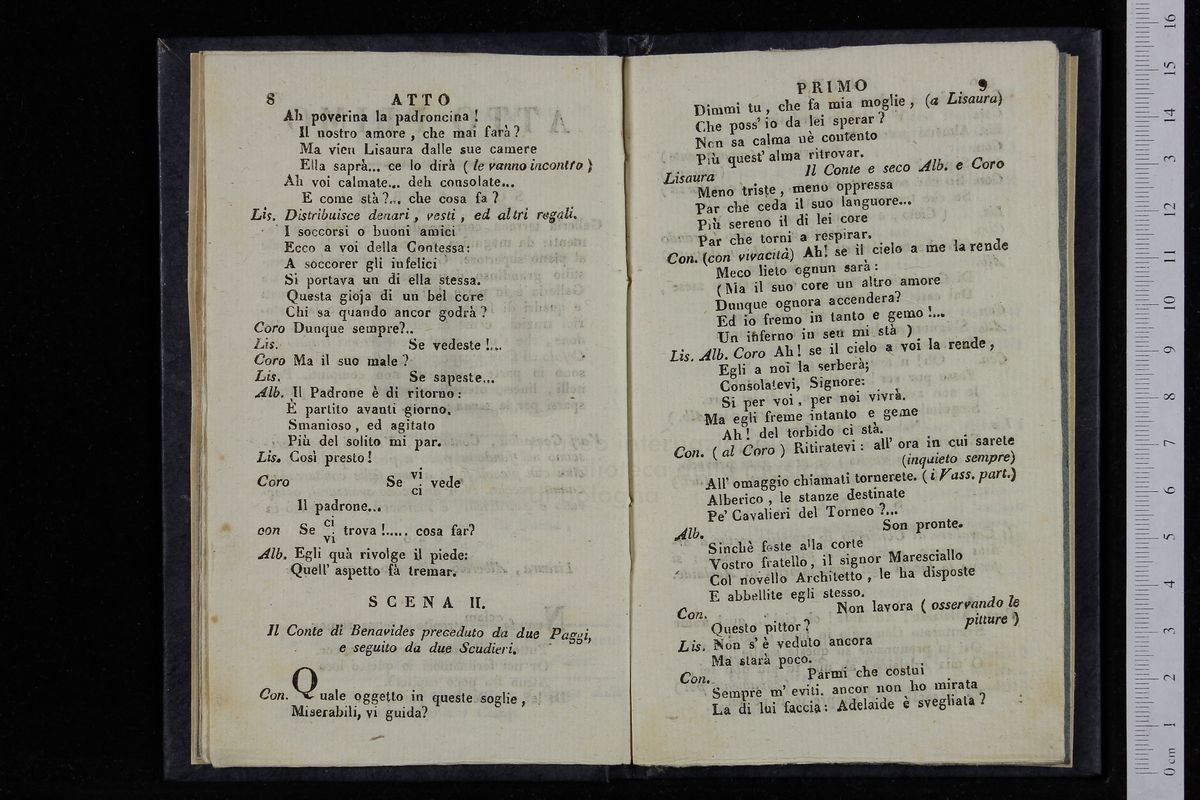 8 ATTO
Ah poverina la padroncina !
Il nostro amore , che mai farà ?
Ma vien Lisaura dalle sue camere
Ella saprà... ce lo dirà ( le vanno incontro )
Ah voi calmate... deh consolate...
E come stà ?... che cosa fa ?
Lis. Distribuisce denari , vesti , ed altri regali.
I soccorsi o buoni amici
Ecco a voi della Contessa:
A soccorer gli infelici
Si portava un dì ella stessa.
Questa gioja di un bel core
Chi sa quando ancor godrà ?
Coro Dunque sempre?..
Lis. Se vedeste !...
Coro Ma il suo male ?
Lis. Se sapeste...
Alb. Il Padrone è di ritorno :
È partito avanti giorno.
Smanioso , ed agitato
Più del solito mi par.
Lis. Così presto !
vi
Coro Se : vede
ci
Il padrone...
ci
con Se : trova !..... cosa far?
vi
Alb. Egli quà rivolge il piede:
Quell' aspetto fà tremar.
SCENA II.
Il Conte di Benavides preceduto da due Paggi,
e seguito da due Scudieri.
Con. Quale oggetto in queste soglie ,
Miserabili, vi guida?
PRIMO 9
Dimmi tu , che fa mia moglie , (a Lisaura)
Che poss' io da lei sperar ?
Non sa calma nè contento
Più quest' alma ritrovar.
Lisaura Il Conte e seco Alb. e Coro
Meno triste , meno oppressa
Par che ceda il suo languore...
Più sereno il di lei core
Par che torni a respirar.
Con. (con vivacità) Ah! se il cielo a me la rende
Meco lieto ognun sarà :
(Ma il suo core un altro amore
Dunque ognora accenderà?
Ed io fremo in tanto e gemo !...
Un inferno in seu mi stà )
Lis. Alb. Coro Ah! se il cielo a voi la rende ,
Egli a noi la serberà;
Consolatevi, Signore:
Si per voi , per noi vivrà.
Ma egli freme intanto e geme
Ah! del torbido ci stà.
Con. ( al Coro ) Ritiratevi : all' ora in cui sarete
(inquieto sempre)
All' omaggio chiamati tornerete. ( i Vass. part.)
Alberico , le stanze destinate
Pe' Cavalieri del Torneo ?...
Alb. Son pronte.
Sinchè foste alla corte
Vostro fratello , il signor Maresciallo
Col novello Architetto , le ha disposte
E abbellite egli stesso.
Con. Non lavora ( osservando le
Questo pittor ? pitture )
Lis. Non s' è veduto ancora
Ma starà poco.
Con. Parmi che costui
Sempre m' eviti. ancor non ho mirata
La di lui faccia : Adelaide è svegliata ?
0 cm 1 2 3 4 5 6 7 8 9 10 11 12 13 14 15 16